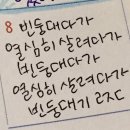 8 빈둥대다가
열심히 살려다가
빈둥대다가
열심히 살려다가
빈둥대기 르즈